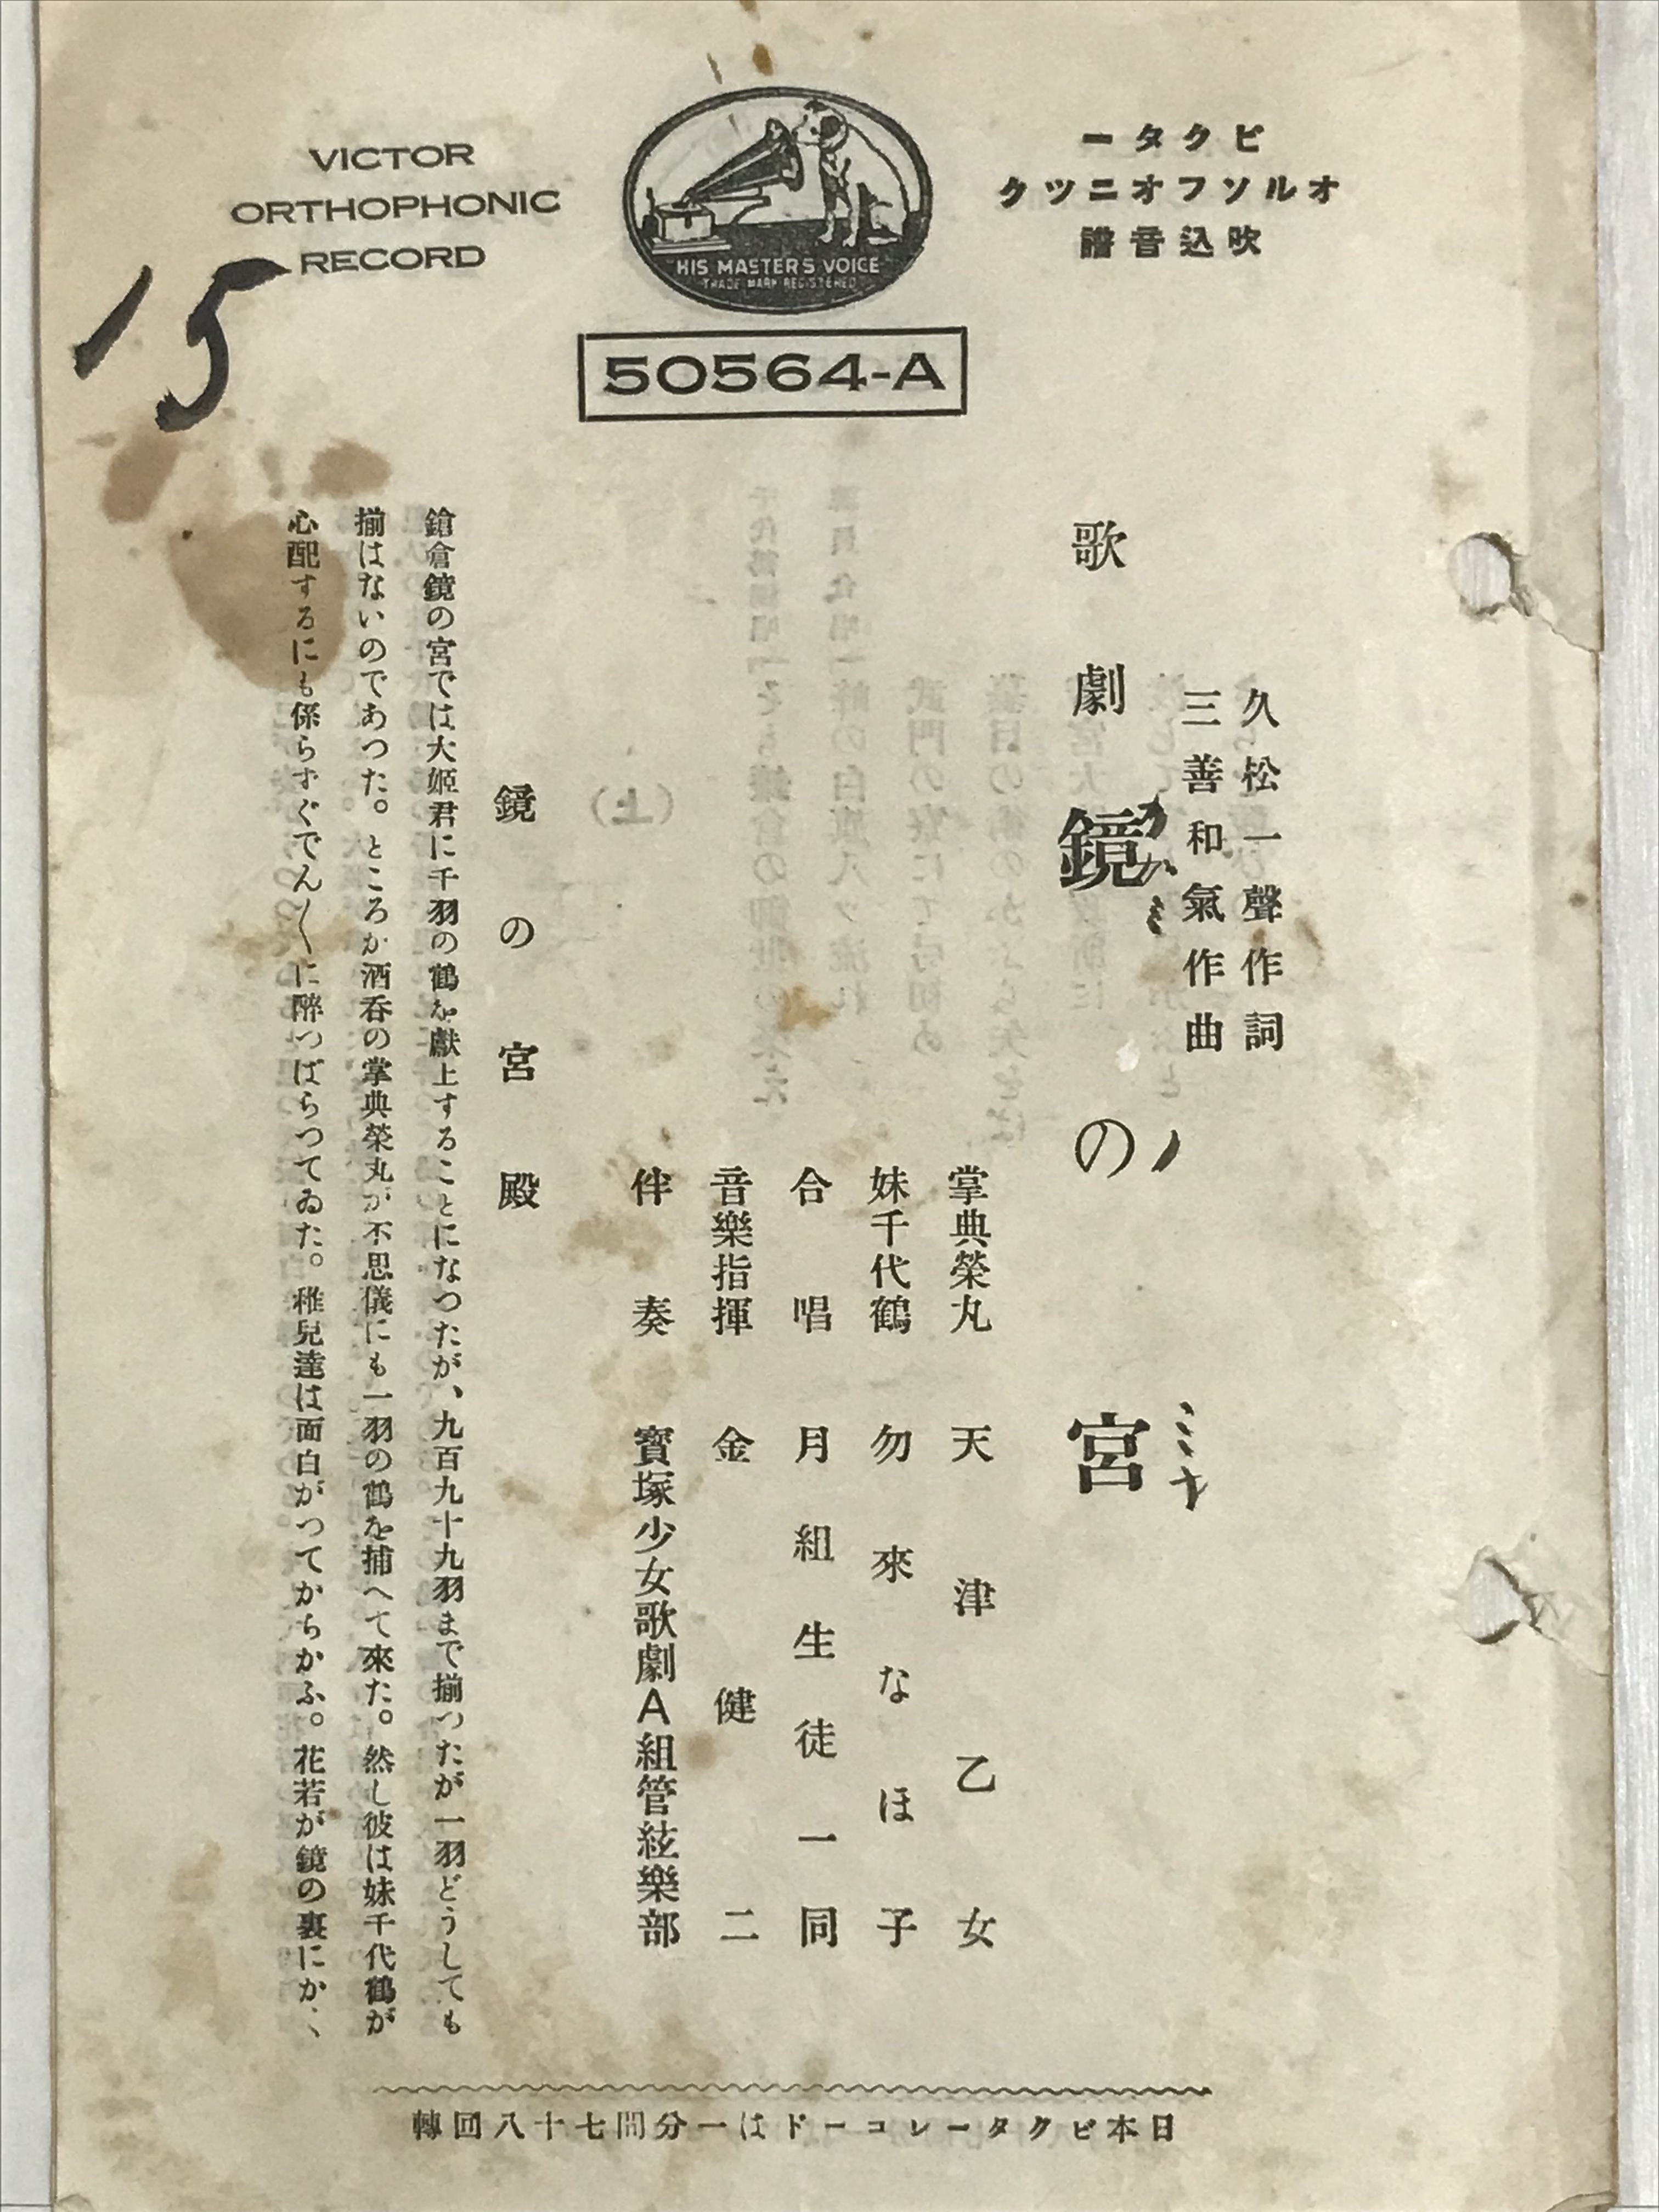 VICTOR
ORTHOPHONIC
RECORD
HIS MASTER'S VOICE
TRADE MARK REGISTERED
ビクター
オルソフオニツク
吹込音譜
15
50564-A
久松一聲作詞
三善和氣作曲
歌劇 鏡の宮
カガミノミヤ
掌典榮丸 天津乙女
妹千代鶴 勿來なほ子
合唱 月組生徒一同
音樂指揮 金健二
伴奏 寳塚少女歌劇A組管絃樂部
鏡の宮殿
鎗倉鏡の宮では大姬君に千羽の鶴を獻上することになつたが、九百九十九羽まで揃つたが一羽どうしても
揃はないのであつた。ところが酒呑の掌典榮丸が不思儀にも一羽の鶴を捕へて來た。然し彼は妹千代鶴が
心配するにも係らずぐでん〱に醉つぱらつてゐた。稚兒達は面白がつてからかふ。花若が鏡の裏にかゝ
日本ビクターレコードは一分間七十八回轉